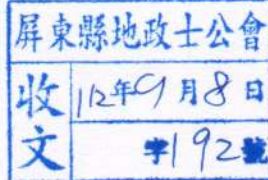 屏東縣地政士公會
收文
112年9月8日
字192號